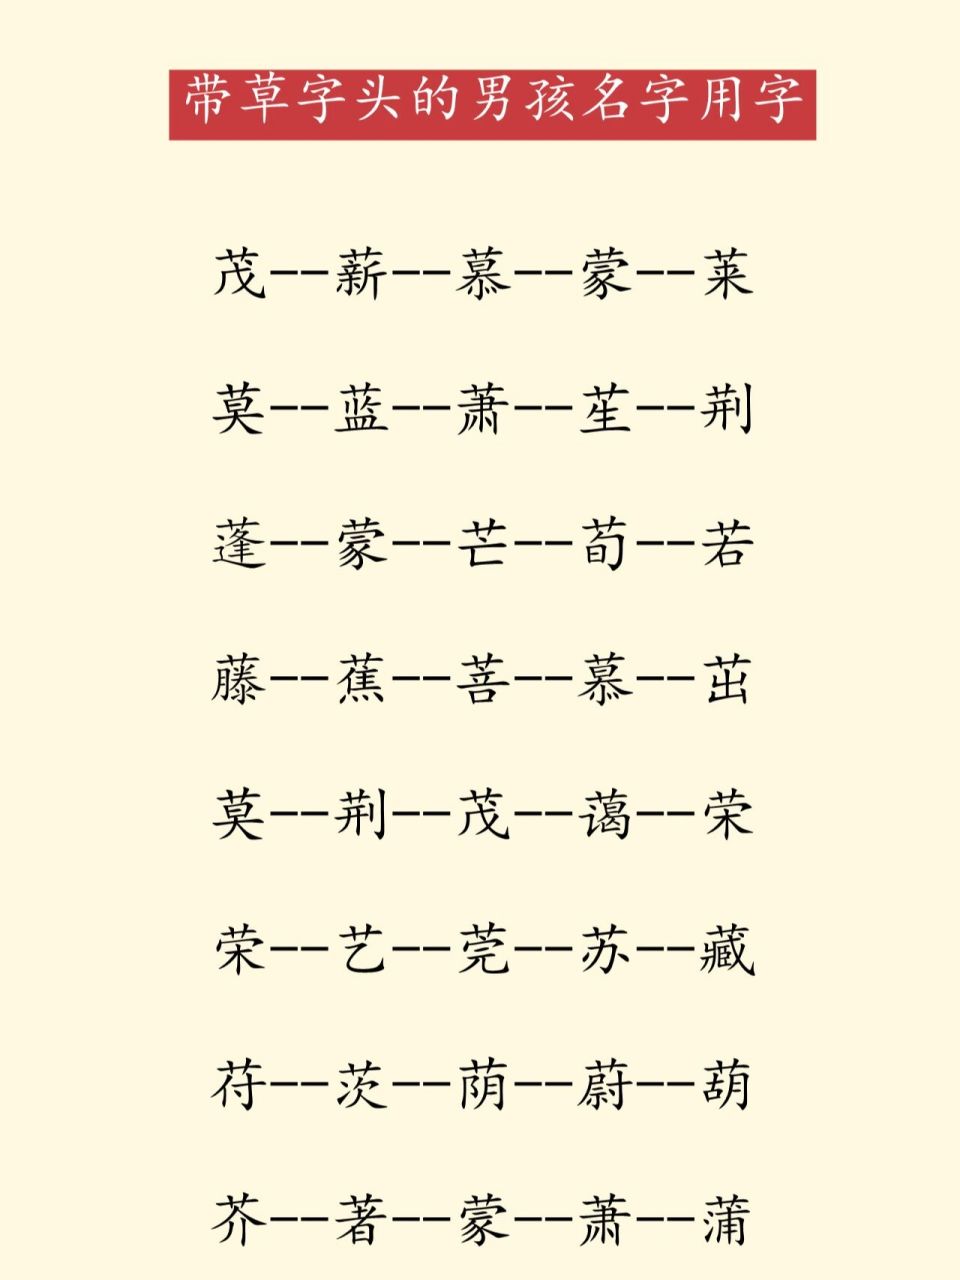 带草字头的男孩名字用字
茂--薪--慕--蒙--莱
莫--蓝--萧--苼--荆
蓬--蒙--芒--荀--若
藤--蕉--菩--慕--茁
莫--荆--茂--蔼--荣
荣--艺--莞--苏--藏
苻--茨--荫--蔚--葫
芥--著--蒙--萧--蒲